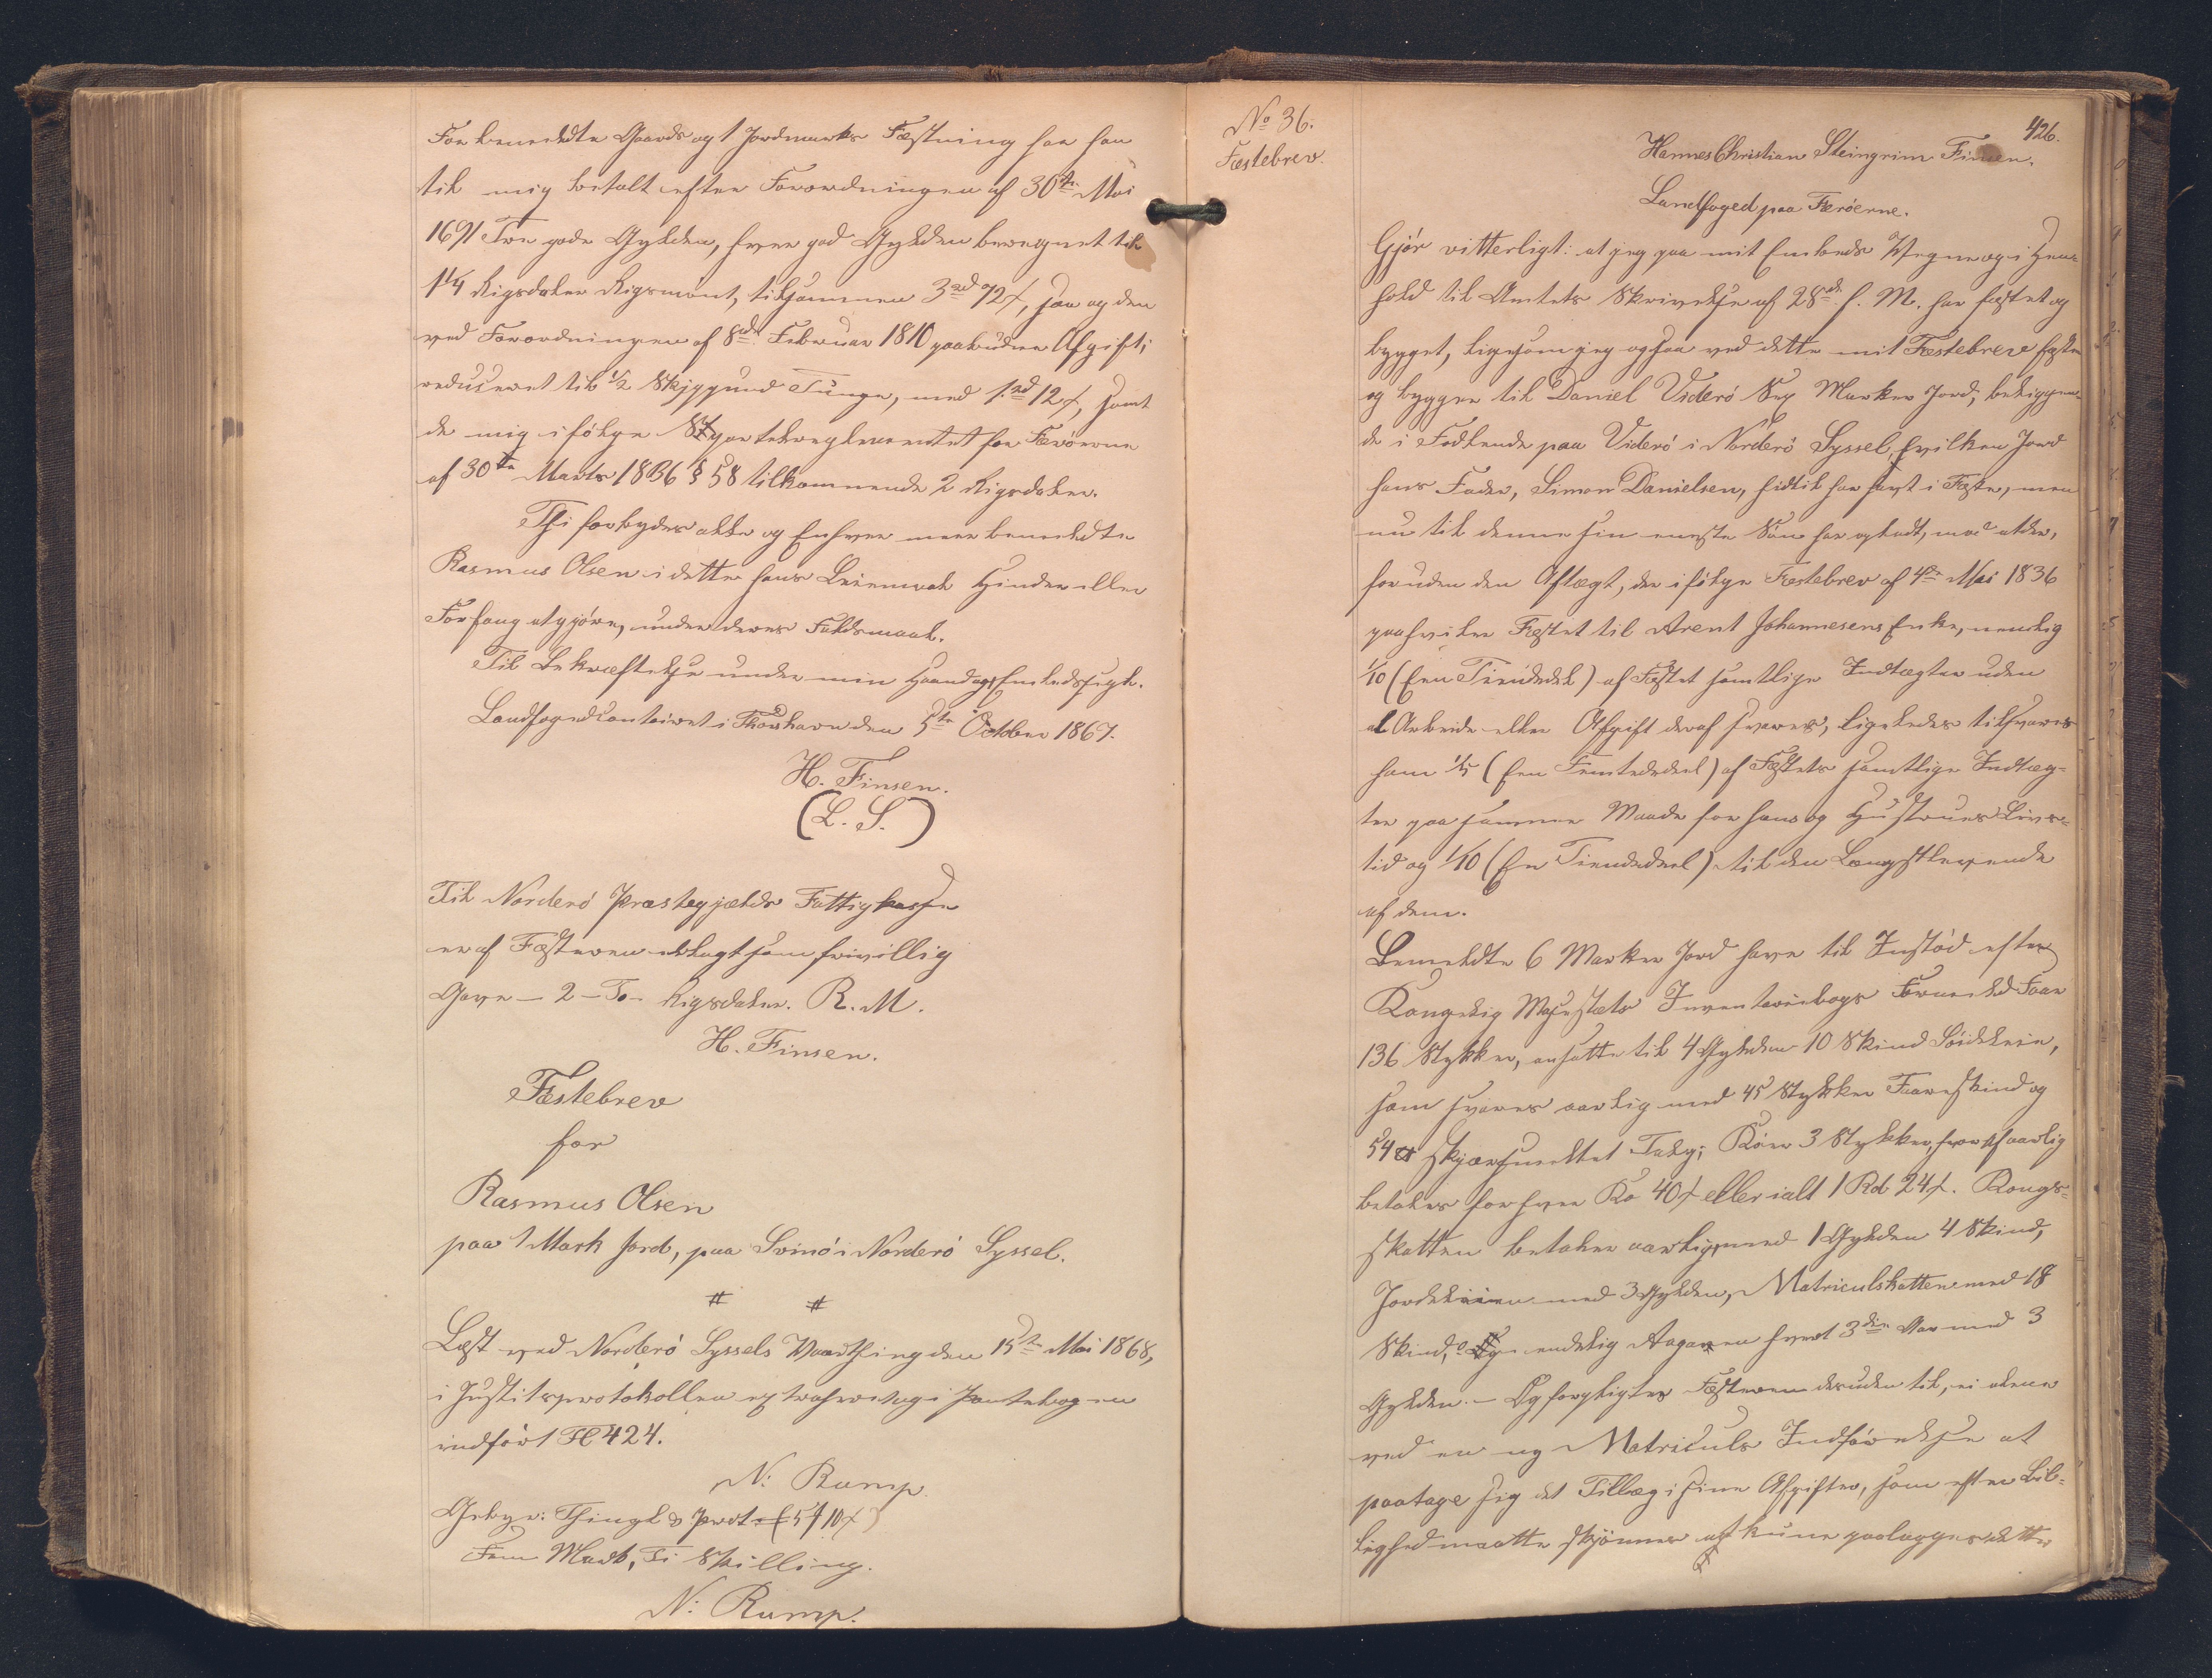 Forbemeldte Gaards og 1 Jordmarks Fæstning har han
til mig betalt efter Forordningen af 30te Mai
1691 Tre gode Gylden, hver god Gylden beregnet til
1 1/4 Rigsdaler Rigsmønt, tilsammen 3rd 72ß, saa og den
ved Forordningen af 8de Februar 1810 paabudne Afgift;
reduceret til 1/2 Skippund Tunge, med 1rd 12ß, samt
de mig ifølge Sportelreglementet for Færöerne
af 30te Marts 1836 § 58 tilkommende 2 Rigsdaler.
Thi forbydes alle og Enhver meerbemeldte
Rasmus Olsen i dette hans Leiemaal Hinder eller
Forfang at gjøre, under deres Faldsmaal.
Til Bekræftelse under min Haand og Embedssegl.
Landfogedcontoiret i Thorshavn den 5te October 1867.
H. Finsen.
(L. S.)
Til Norderö Præstegjælds Fattigkasse
er af Fæsteren erlagt som frivillig
Gave – 2 – To – Rigsdaler. R. M.
H. Finsen.
Fæstebrev
for
Rasmus Olsen
paa 1 Mark Jord, paa Svinö i Norderö Syssel.
# #
Læst ved Norderö Syssels Vaarthing den 15de Mai 1868,
i Justitsprotokollen extraheret og i Pantebogen
indført Fol 424.
N: Rump.
Gebyr: Thingl & Prot. (5 ₰ 10ß)
Fem Mark, Ti Skilling.
N: Rump.
No 36.
Fæstebrev.
426.
Hannes Christian Steingrim Finsen,
Landfoged paa Færöerne.
Gjör vitterligt: at jeg paa mit Embeds Vegne og i Hen-
hold til Amtets Skrivelse af 28de f. M. har fæstet og
bygget, ligesom jeg ogsaa ved dette mit Fæstebrev fæster
og bygger til Daniel Viderö Sex Marker Jord, beliggen-
de i Fodlende paa Viderö i Norderö Syssel, hvilken Jord
hans Fader, Simon Danielsen, hidtil har havt i Fæste, men
nu til denne sin eneste Søn har opladt, mod at der,
foruden den Aftægt, der ifølge Fæstebrev af 4de Mai 1836
paahviler Fæstet til Arent Johannesens Enke, nemlig
1/10 (Een Tiendedel) af Fæstet samtlige Indtægter uden
al Arbeide eller Afgift deraf svares, ligeledes tilsvares
ham 1/5 (Een Femtededeel) af Fæstets samtlige Indtæg-
ter paa samme Maade for hans og Hustrues Livs-
tid og 1/10 (En Tiendedeel) til den Længstlevende
af dem.
Bemeldte 6 Marker Jord have til Indstød efter
Kongelig Majestæts Inventariebogs Formeld Faar
136 Stykker, ansatte til 4 Gylden 10 Skind Søideleie,
som svares aarlig med 45 Stykker Faareskind og
54 ℔ skjærsmeltet Talg; Køer 3 Stykker, hvoraf aarlig
betales for hver Ko 40ß eller ialt 1 Rd 24ß. Kongs-
skatten betaler aarlig med 1 Gylden 4 Skind,
Jordeleien med 3 Gylden, Matriculskatten med 18
Skind, og endelig Aagaven hvert 3die Aar med 3
Gylden. – Og forpligtes Fæsteren desuden til, ei alene
ved en ny Matriculs Indførelse at
paatage sig det Tillæg i sine Afgifter, som efter Bil-
lighed maatte skjønnes at kunne paalægges dette